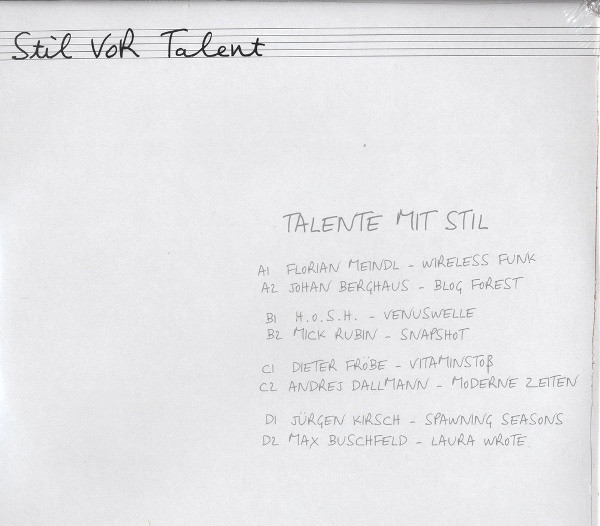 Stil VoR Talent
TALENTE MIT STIL
A1 FLORIAN MEINDL - WIRELESS FUNK
A2 JOHAN BERGHAUS - BLOG FOREST
B1 H.O.S.H. - VENUSWELLE
B2 MICK RUBIN - SNAPSHOT
C1 DIETER FRÖBE - VITAMINSTOß
C2 ANDREJ DALLMANN - MODERNE ZEITEN
D1 JÜRGEN KIRSCH - SPAWNING SEASONS
D2 MAX BUSCHFELD - LAURA WROTE